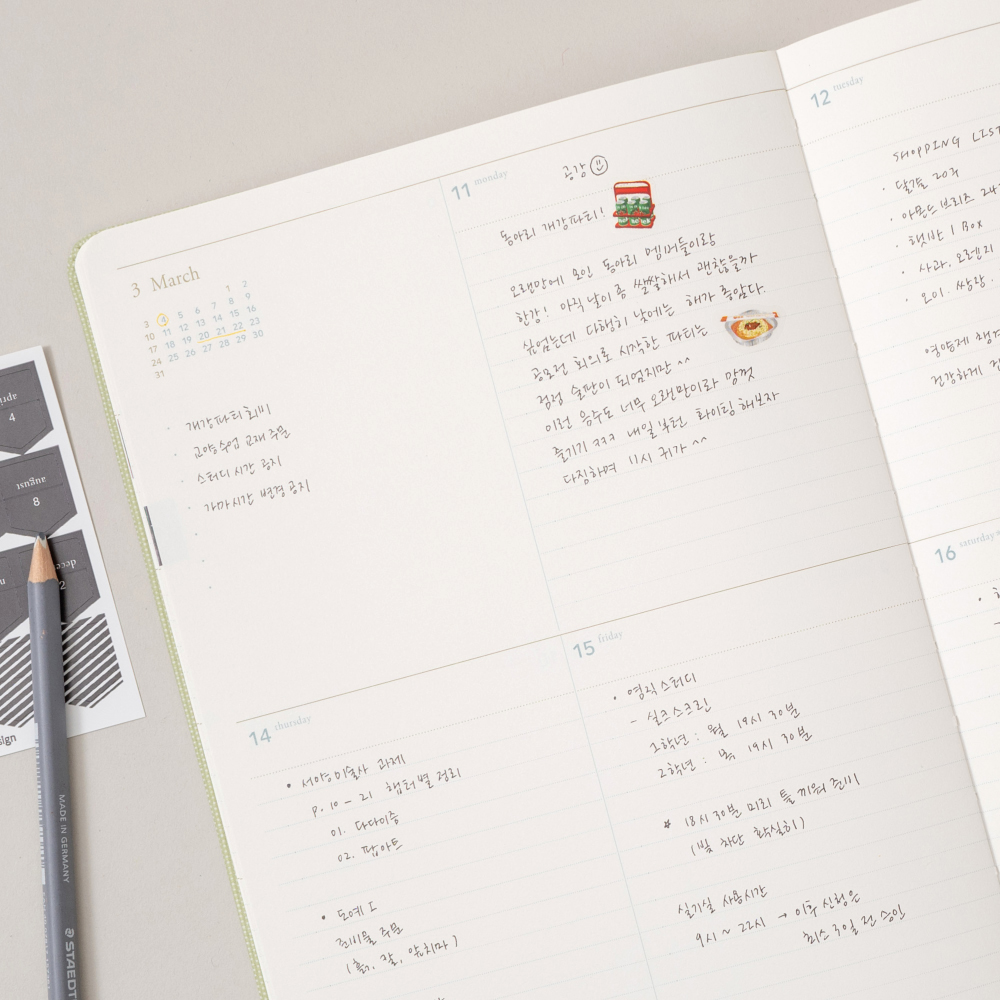 3 March
1 2
3 4 5 6 7 8 9
10 11 12 13 14 15 16
17 18 19 20 21 22 23
24 25 26 27 28 29 30
31
· 개강파티 회비
· 교양수업 교재 주문
· 스터디 시간 공지
· 가마시간 변경 공지
11 monday
공강
동아리 개강파티!
오랜만에 모인 동아리 멤버들이랑
한강! 아직 날이 좀 쌀쌀해서 괜찮을까
싶었는데 다행히 낮에는 해가 좋았다.
공모전 회의로 시작한 파티는
점점 술판이 되었지만 ^^
이런 음주도 너무 오랜만이라 맘껏
즐기기 ㅋㅋㅋ 내일부턴 화이팅 해보자
다짐하며 11시 귀가 ^^
12 tuesday
SHOPPING LIST
· 달걀 20구
· 아몬드 브리즈
· 햇반 1 Box
· 사과, 오렌지
· 오이, 쌍랑,
영양제
건강하게
14 thursday
• 서양미술사 과제
p. 10 - 21 챕터별 정리
01. 다다이즘
02. 팝아트
• 도예 I
준비물 주문
(흙, 칼, 앞치마)
15 friday
• 염직 스터디
- 실크스크린
1학년 : 월 19시 30분
2학년 : 목 19시 30분
* 18시 30분 미리 틀 끼워 준비
(빛 차단 확실히)
실기실 사용시간
9시 ~ 22시 → 이후 신청은
최소 3일 전 승인
16 saturday
april
4
august
8
MADE IN GERMANY
STAEDT